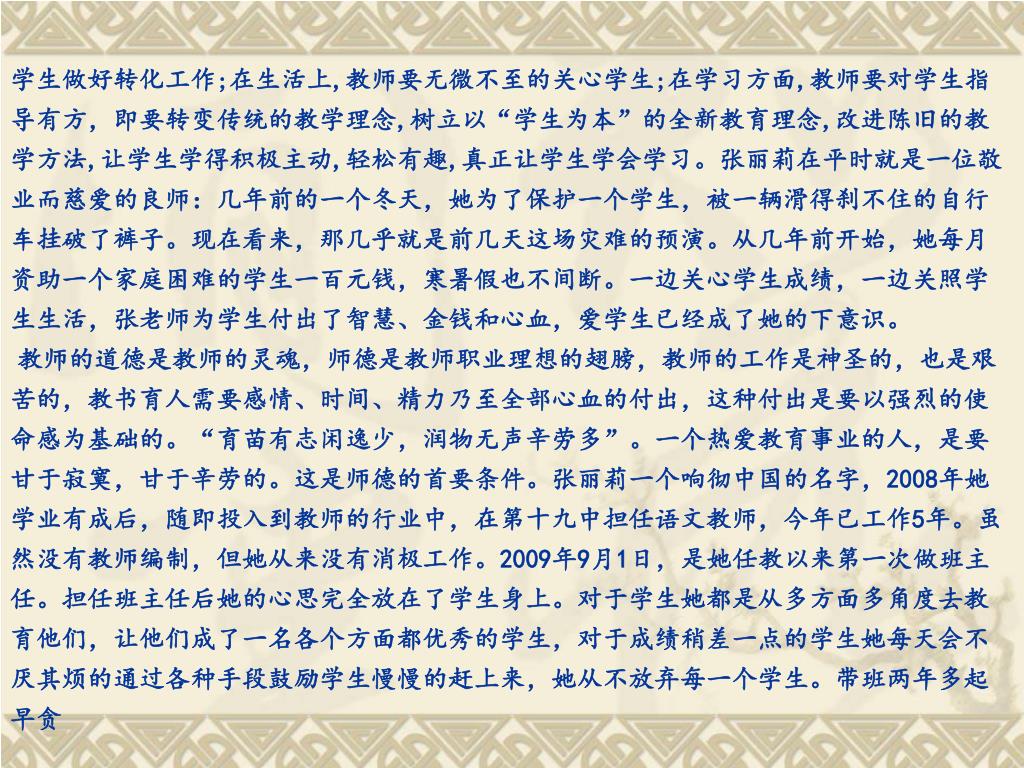 学生做好转化工作;在生活上,教师要无微不至的关心学生;在学习方面,教师要对学生指
导有方，即要转变传统的教学理念,树立以“学生为本”的全新教育理念,改进陈旧的教
学方法,让学生学得积极主动,轻松有趣,真正让学生学会学习。张丽莉在平时就是一位敬
业而慈爱的良师：几年前的一个冬天，她为了保护一个学生，被一辆滑得刹不住的自行
车挂破了裤子。现在看来，那几乎就是前几天这场灾难的预演。从几年前开始，她每月
资助一个家庭困难的学生一百元钱，寒暑假也不间断。一边关心学生成绩，一边关照学
生生活，张老师为学生付出了智慧、金钱和心血，爱学生已经成了她的下意识。
教师的道德是教师的灵魂，师德是教师职业理想的翅膀，教师的工作是神圣的，也是艰
苦的，教书育人需要感情、时间、精力乃至全部心血的付出，这种付出是要以强烈的使
命感为基础的。“育苗有志闲逸少，润物无声辛劳多”。一个热爱教育事业的人，是要
甘于寂寞，甘于辛劳的。这是师德的首要条件。张丽莉一个响彻中国的名字，2008年她
学业有成后，随即投入到教师的行业中，在第十九中担任语文教师，今年已工作5年。虽
然没有教师编制，但她从来没有消极工作。2009年9月1日，是她任教以来第一次做班主
任。担任班主任后她的心思完全放在了学生身上。对于学生她都是从多方面多角度去教
育他们，让他们成了一名各个方面都优秀的学生，对于成绩稍差一点的学生她每天会不
厌其烦的通过各种手段鼓励学生慢慢的赶上来，她从不放弃每一个学生。带班两年多起
早贪